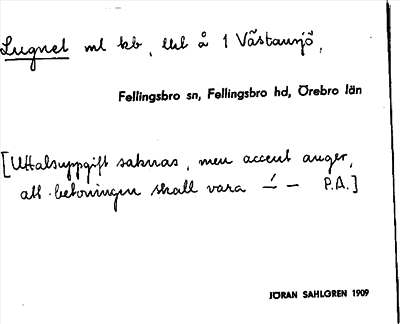 Lugnet ml kb, lht å 1 Västansjö,
Fellingsbro sn, Fellingsbro hd, Örebro län
[Uttalsuppgift saknas, men accent anger,
att betoningen skall vara –́ – P.A.]
JÖRAN SAHLGREN 1909